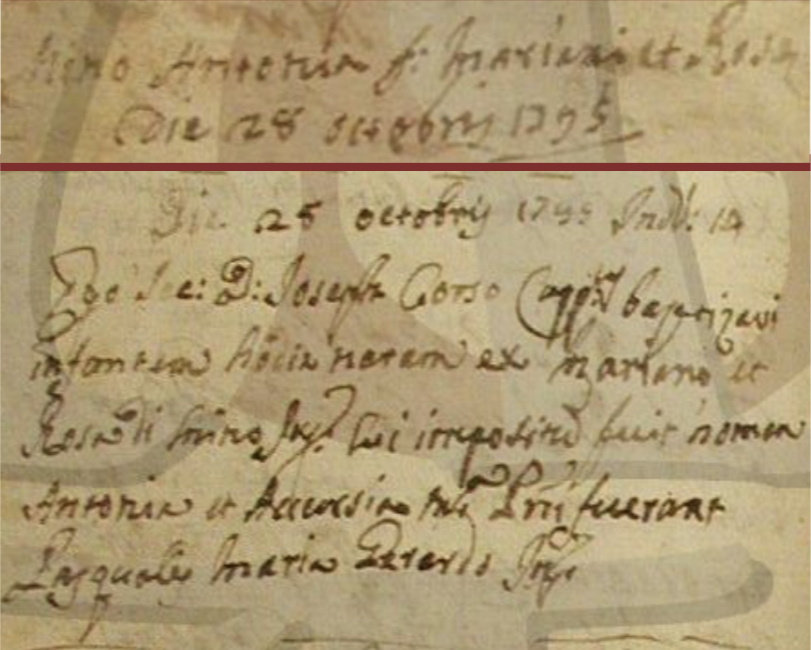 Mino Antonia f: Mariani et Rosa
Die 28 octobris 1795
Die 28 octobris 1795 Ind: 14
Ego Sac: D: Joseph Corso Capp: baptizavi
infantem hodie natam ex Mariano et
Rosa di Mino Jug: Cui impositũ fuit nomen
Antonia et Accursia Pnĩ fuerunt
Pasquale Maria Jug: